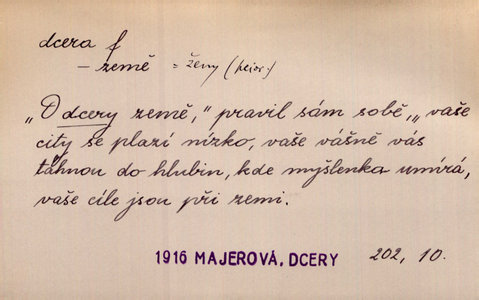 dcera f
– země = ženy (peior.)
„O dcery země,“ pravil sám sobě, „vaše
city se plazí nízko, vaše vášně vás
táhnou do hlubin, kde myšlenka umírá,
vaše cíle jsou při zemi.
1916 MAJEROVÁ, DCERY 202, 10.